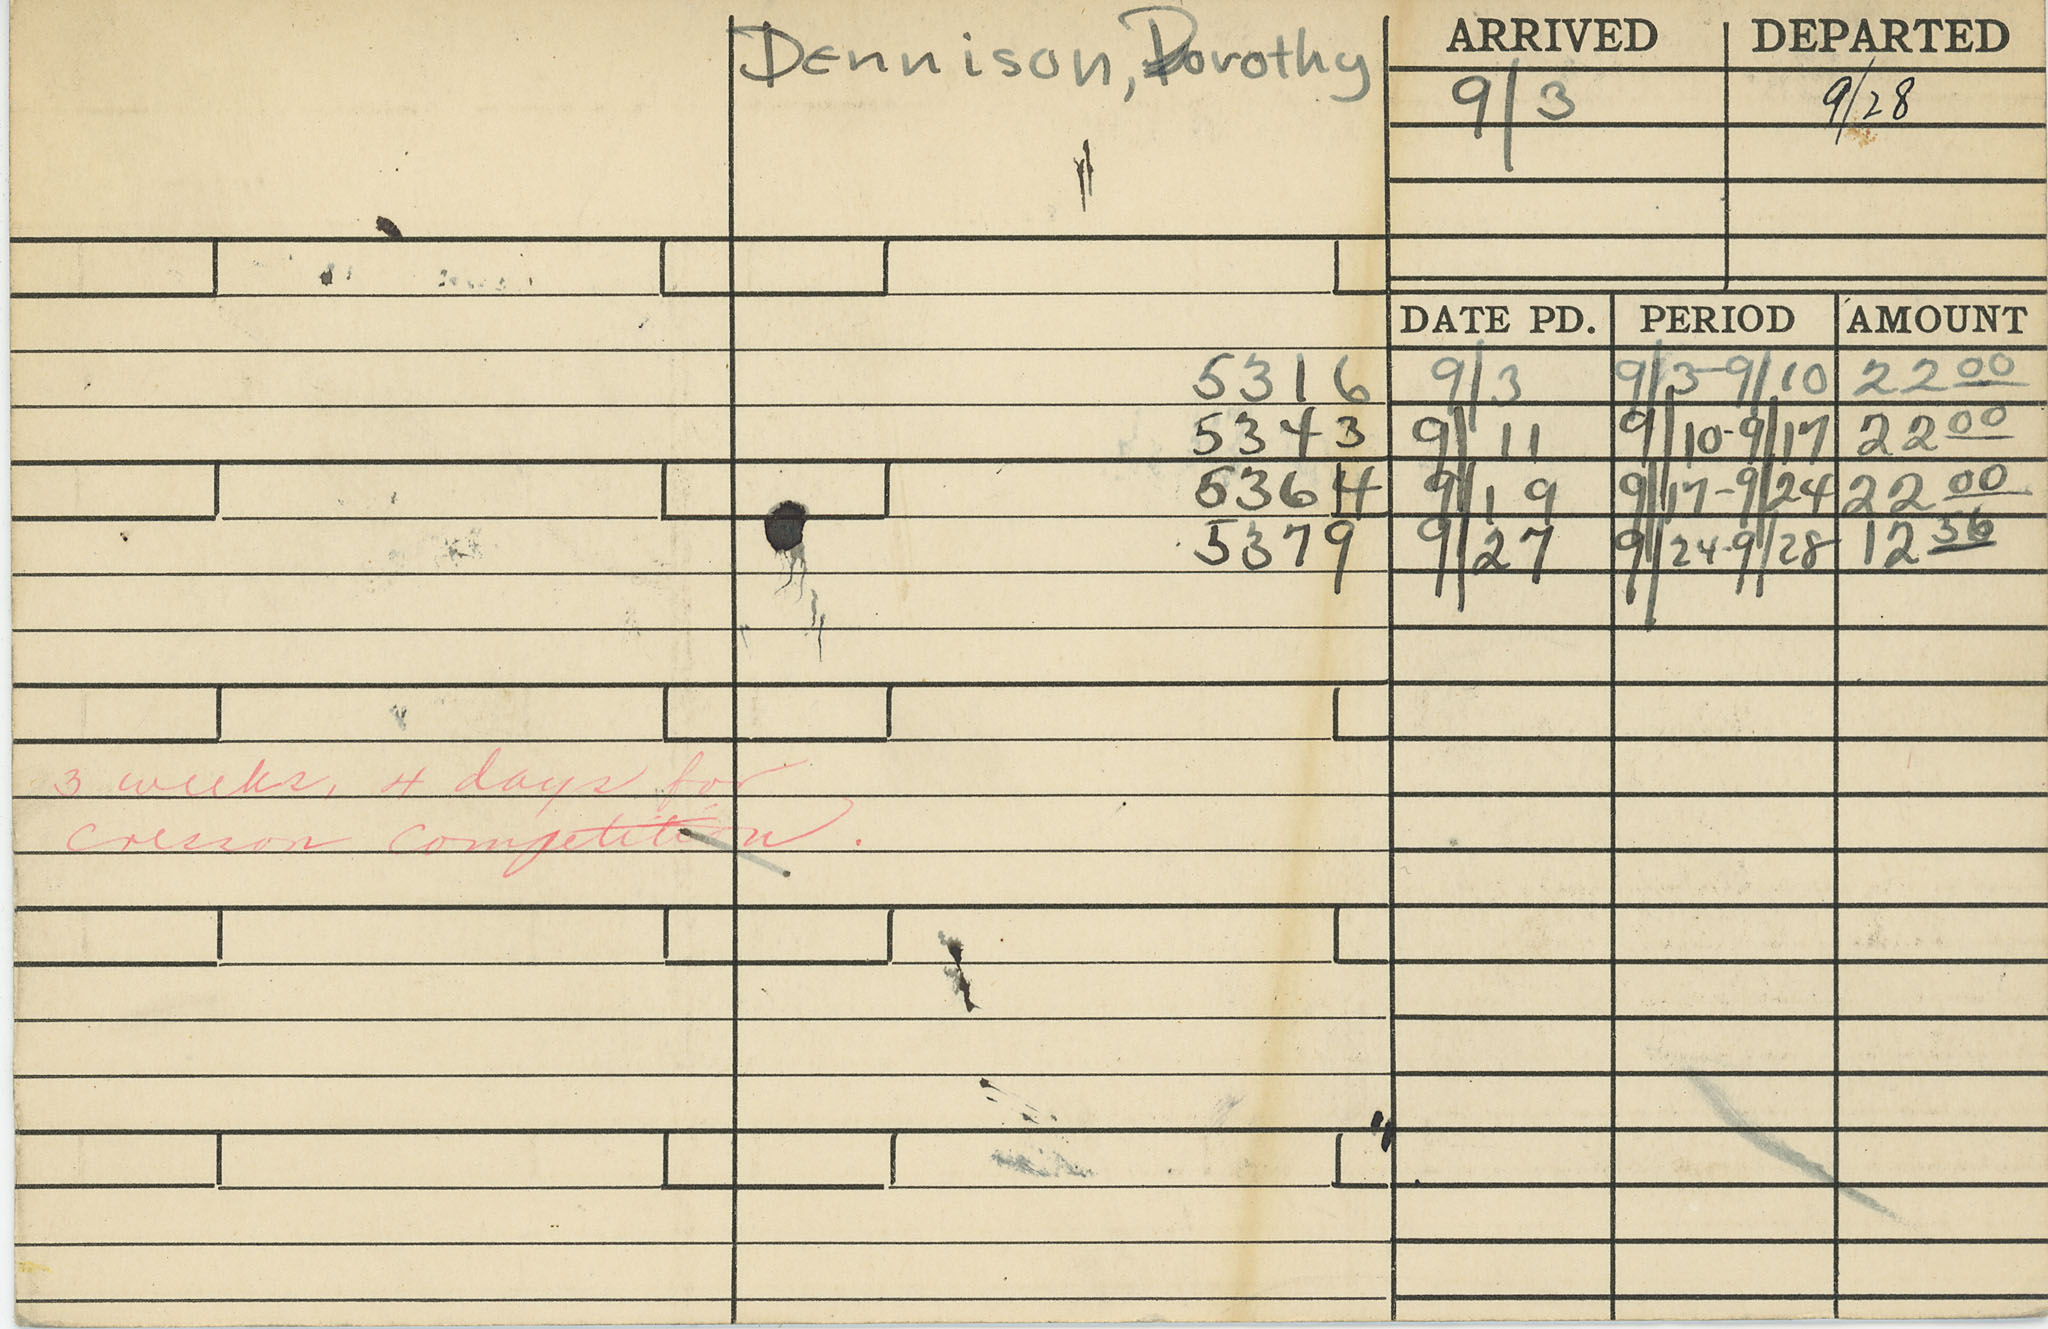 Dennison, Dorothy
ARRIVED DEPARTED
9/3 9/28
DATE PD. PERIOD AMOUNT
5316 9/3 9/3-9/10 22 00
5343 9/11 9/10-9/17 22 00
5364 9/19 9/17-9/24 22 00
5379 9/27 9/24-9/28 12 56
3 weeks, 4 days for
cresson competition.